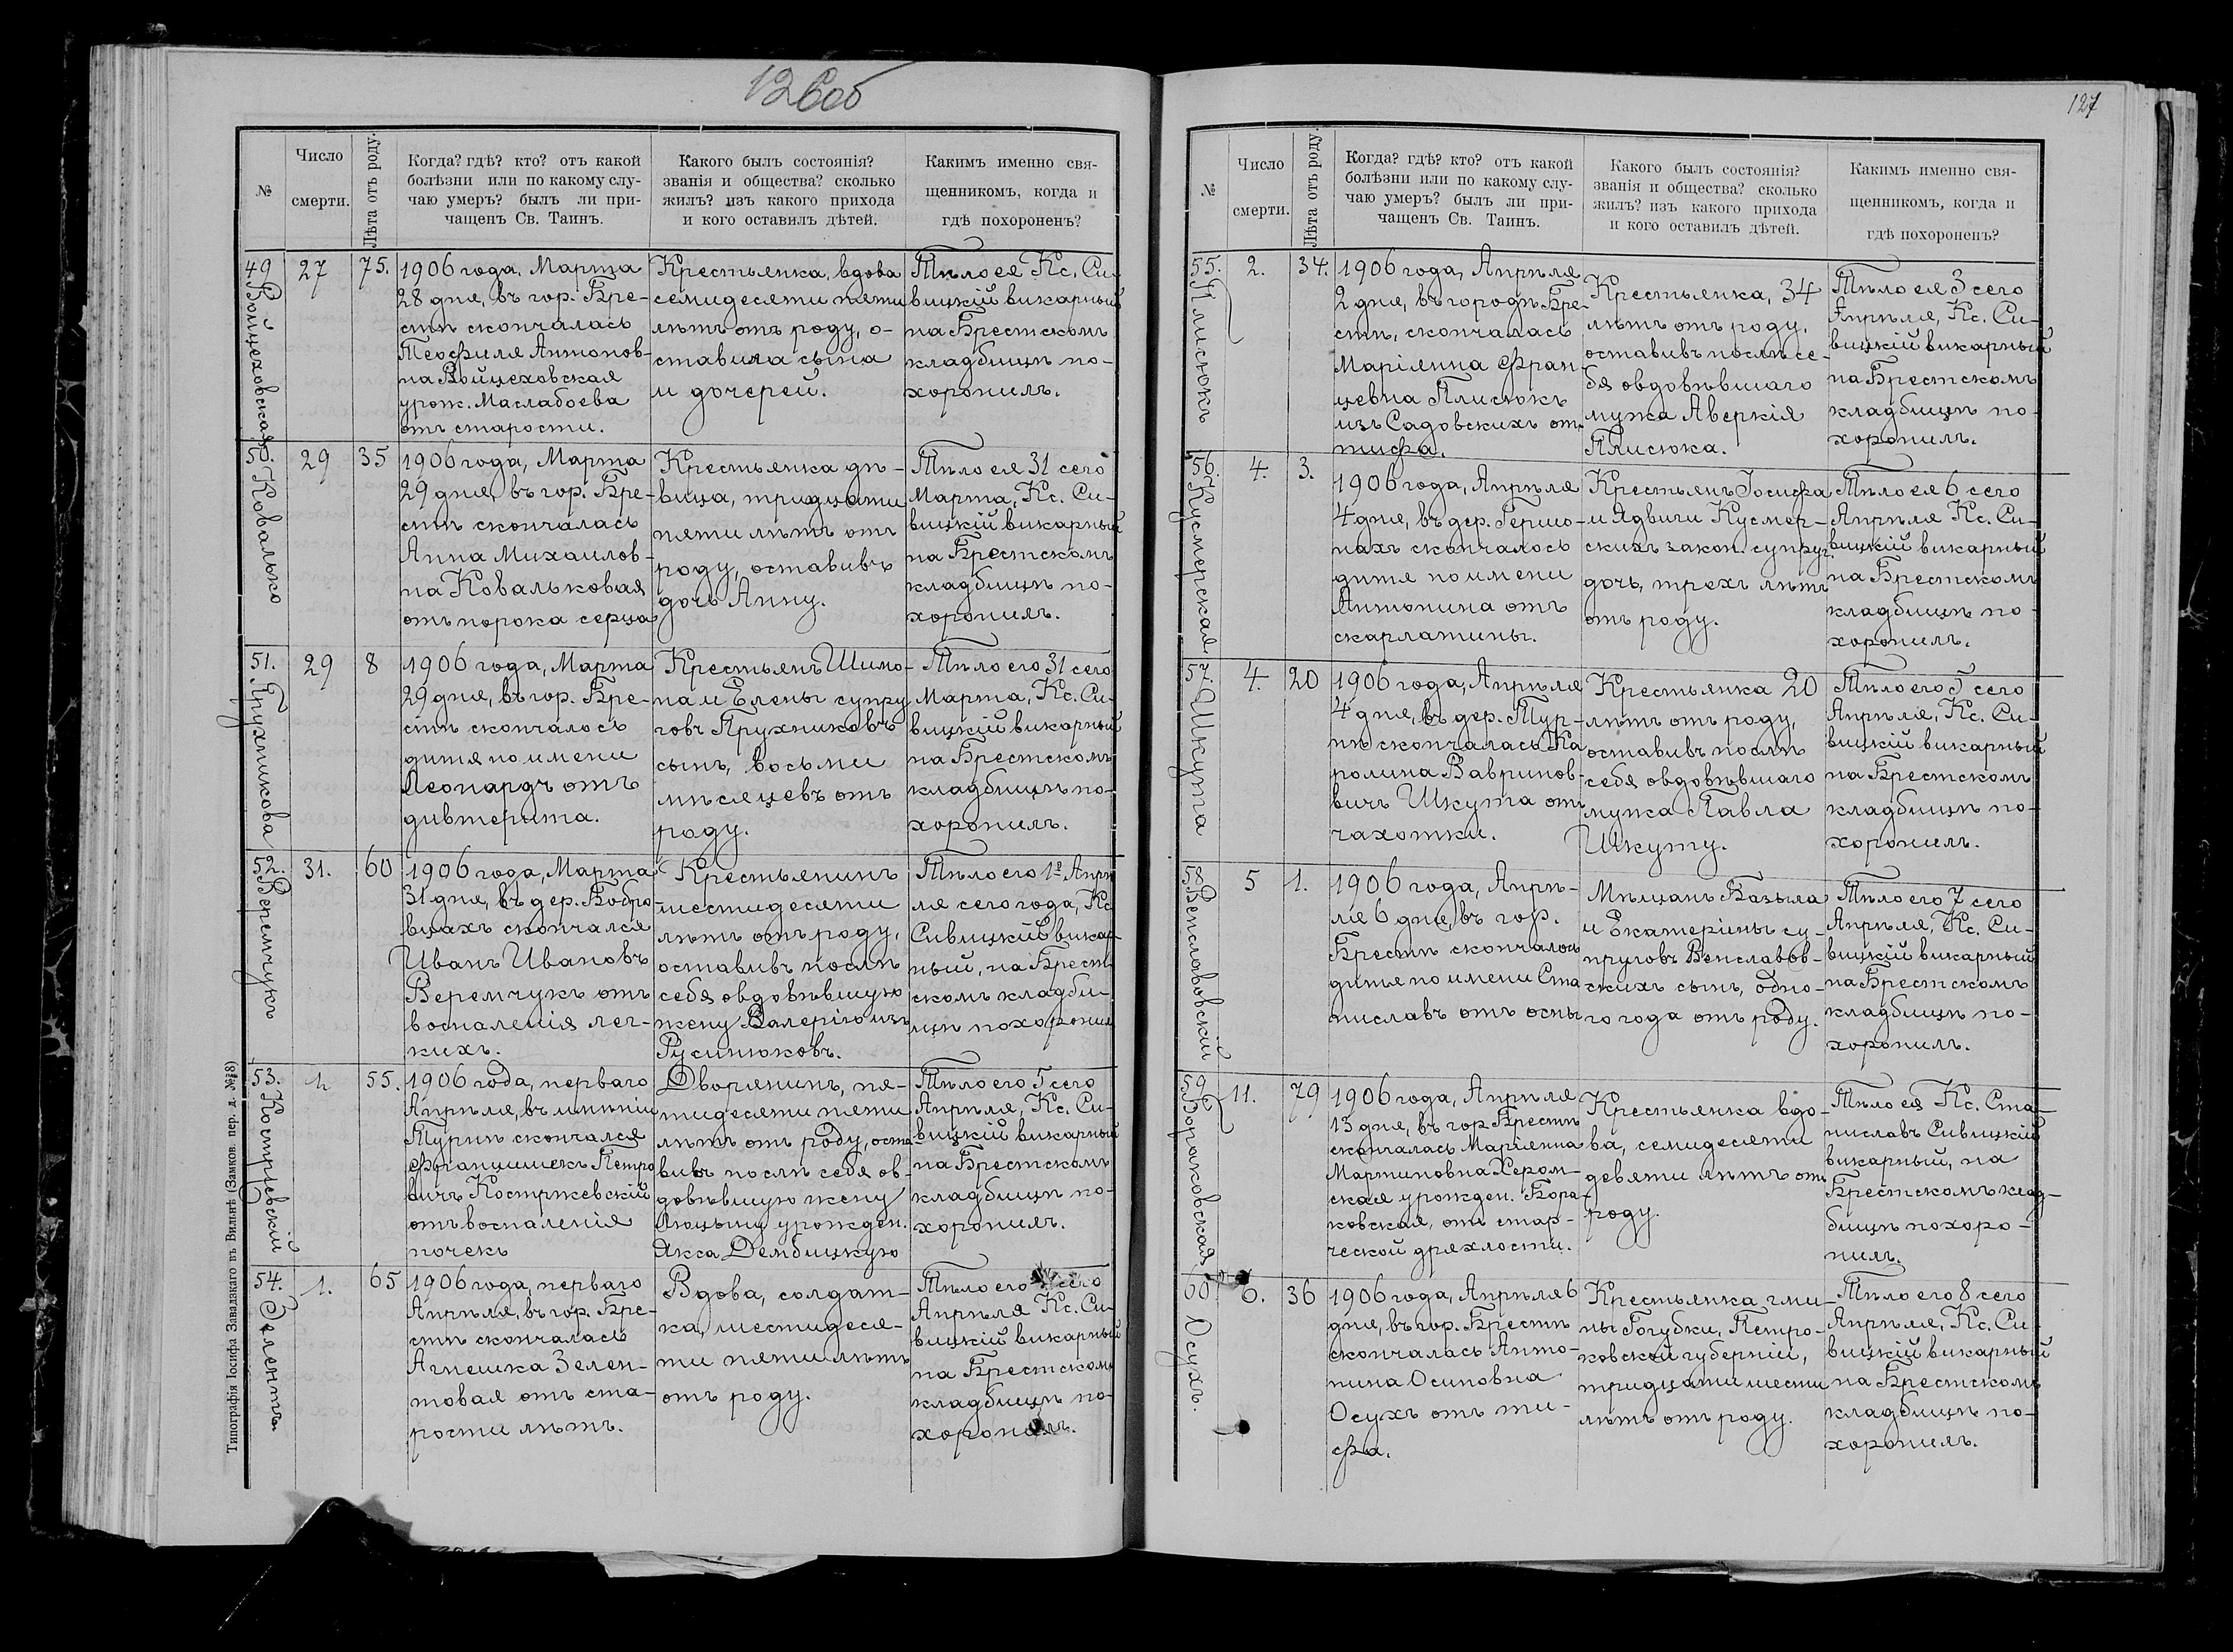 126об
№
Число
смерти.
Лѣта отъ роду.
Когда? гдѣ? кто? отъ какой
болѣзни или по какому слу-
чаю умеръ? былъ ли при-
чащенъ Св. Таинъ.
Какого былъ состоянія?
званія и общества? сколько
жилъ? изъ какого прихода
и кого оставилъ дѣтей.
Какимъ именно свя-
щенникомъ, когда и
гдѣ похороненъ?
49
Войцеховская
27
75.
1906 года, Марта
28 дня, въ гор. Бре-
стѣ скончалась
Теофиля Антонов-
на Войцеховская
урож. Маслабоева
отъ старости.
Крестьянка, вдова
семидесяти пяти
лѣтъ отъ роду, о-
ставила сына
и дочерей.
Тѣло ея Кс. Си-
вицкій викарный
на Брестскомъ
кладбищѣ по-
хоронилъ.
50.
Ковалько
29
35
1906 года, Марта
29 дня, въ гор. Бре-
стѣ скончалась
Анна Михаилов-
на Ковальковая
отъ порока серца
Крестьянка дѣ-
вица, тридцати
пяти лѣтъ отъ
роду, оставивъ
дочь Анну.
Тѣло ея 31 сего
Марта, Кс. Си-
вицкій викарный
на Брестскомъ
кладбищѣ по-
хоронилъ.
51.
Прухникова
29
8
1906 года, Марта
29 дня, въ гор. Бре-
стѣ скончалось
дитя по имени
Леонардъ отъ
дивтерита.
Крестьянъ Шимо-
на и Елены супру
говъ Прухниковъ
сынъ, восьми
мѣсяцевъ отъ
роду.
Тѣло его 31 сего
Марта, Кс. Си-
вицкій викарный
на Брестскомъ
кладбищѣ по-
хоронилъ.
52.
Веремчукъ
31.
60
1906 года, Марта
31 дня, въ дер. Бобро-
вцахъ скончался
Иванъ Ивановъ
Веремчукъ отъ
воспаленія лег-
кихъ.
Крестьянинъ
шестидесяти
лѣтъ отъ роду,
оставивъ послѣ
себя овдовѣвшую
жену Валерію изъ
Русинюковъ.
Тѣло его 1го Апрѣ
ля сего года, Кс
Сивицкій викар-
ный, на Брест-
скомъ кладби-
щѣ похоронил
53.
Костржевскій
1
55.
1906 года, перваго
Апрѣля, въ имѣніи
Турнѣ скончался
Францишекъ Петро
вичъ Костржевскій
отъ воспаленія
почекъ
Дворянинъ, пя-
тидесяти пяти
лѣтъ отъ роду, оста-
вивъ послѣ себя ов-
довѣвшую жену
Люцыну урожден.
Якса Дембицкую
Тѣло его 5 сего
Апрѣля, Кс. Си-
вицкій викарный
на Брестскомъ
кладбищѣ по-
хоронилъ.
54.
Зелентъ
1.
65
1906 года, перваго
Апрѣля, въ гор. Бре-
стѣ скончалась
Агнешка Зелен-
товая отъ ста-
рости лѣтъ.
Вдова, солдат-
ка, шестидеся-
ти пяти лѣтъ
отъ роду.
Тѣло его сего
Апрѣля Кс. Си-
вицкій викарный
на Брестскомъ
кладбищѣ по-
хоронилъ.
Типографія Іосифа Завадзкаго въ Вильнѣ (Замков. пер. д. № 8)
127
№
Число
смерти.
Лѣта отъ роду.
Когда? гдѣ? кто? отъ какой
болѣзни или по какому слу-
чаю умеръ? былъ ли при-
чащенъ Св. Таинъ.
Какого былъ состоянія?
званія и общества? сколько
жилъ? изъ какого прихода
и кого оставилъ дѣтей.
Какимъ именно свя-
щенникомъ, когда и
гдѣ похороненъ?
55.
Плисюкъ
2.
34.
1906 года, Апрѣля
2 дня, въ городѣ Бре-
стѣ, скончалась
Маріянна Фран
цевна Плисюкъ
изъ Садовскихъ отъ
тифа.
Крестьянка, 34
лѣтъ отъ роду,
оставивъ послѣ се-
бя овдовѣвшаго
мужа Аверкія
Плисюка.
Тѣло ея 3 сего
Апрѣля, Кс. Си-
вицкій викарный
на Брестскомъ
кладбищѣ по-
хоронилъ.
56.
Кусмерская
4.
3.
1906 года, Апрѣля
4 дня, въ дер. Гершо-
нахъ скончалось
дитя по имени
Антонина отъ
скарлатины.
Крестьянъ Іосифа
и Ядвиги Кусмер-
скихъ закон. супруг.
дочь, трехъ лѣтъ
отъ роду.
Тѣло ея 6 сего
Апрѣля Кс. Си-
вицкій викарный
на Брестскомъ
кладбищѣ по-
хоронилъ.
57.
Шкута
4.
20
1906 года, Апрѣля
4 дня, въ дер. Тур-
нѣ скончалась Ка
ролина Вавринов-
вичъ Шкута отъ
чахотки.
Крестьянка 20
лѣтъ отъ роду,
оставивъ послѣ
себя овдовѣвшаго
мужа Павла
Шкуту.
Тѣло его 5 сего
Апрѣля, Кс. Си-
вицкій викарный
на Брестскомъ
кладбищѣ по-
хоронилъ.
58
Венславовскій
5
1.
1906 года, Апрѣ-
ля 6 дня, въ гор.
Брестѣ скончалось
дитя по имени Ста
ниславъ отъ оспы
Мѣщанъ Базыла
и Екатерины су-
пруговъ Венславов-
скихъ сынъ, одно-
го года отъ роду.
Тѣло его 7 сего
Апрѣля, Кс. Си-
вицкій викарный
на Брестскомъ
кладбищѣ по-
хоронилъ.
59.
Бораковская
11.
79
1906 года, Апрѣля
13 дня, въ гор. Брестѣ
скончалась Маріянна
Мартиновна Хером-
ская урожден. Бора-
ковская, отъ стар-
ческой дряхлости.
Крестьянка вдо-
ва, семидесяти
девяти лѣтъ отъ
роду.
Тѣло ея Кс. Ста-
ниславъ Сивицкій
викарный, на
Брестскомъ клад-
бищѣ похоро-
нилъ.
60.
Осухъ.
6.
36
1906 года, Апрѣля 6
дня, въ гор. Брестѣ
скончалась Анто-
нина Осиповна
Осухъ отъ ти-
фа.
Крестьянка гми-
ны Гогубки, Петро-
ковской губерніи,
тридцати шести
лѣтъ отъ роду.
Тѣло его 8 сего
Апрѣля, Кс. Си-
вицкій викарный
на Брестскомъ
кладбищѣ по-
хоронилъ.